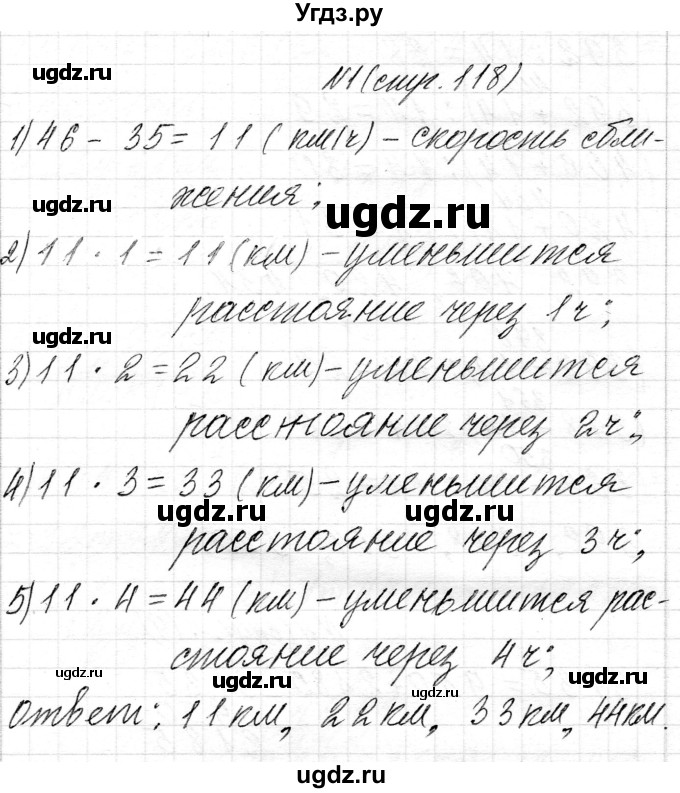 Угдз.ру
ugdz.ru
№1 (стр. 118)
1) 46 - 35 = 11 (км/ч) - скорость сбли-
ugdz.ru
жения;
ugdz.ru
2) 11 · 1 = 11 (км) - уменьшится
расстояние через 1ч;
ugdz.ru
3) 11 · 2 = 22 (км) - уменьшится
расстояние через 2ч;
4) 11 · 3 = 33 (км) - уменьшится
ugdz.ru ugdz.ru
расстояние через 3ч;
5) 11 · 4 = 44 (км) - уменьшится рас-
стояние через 4ч;
ugdz.ru ugdz.ru ugdz.ru
Ответ: 11км, 22км, 33км, 44км.
ugdz.ru